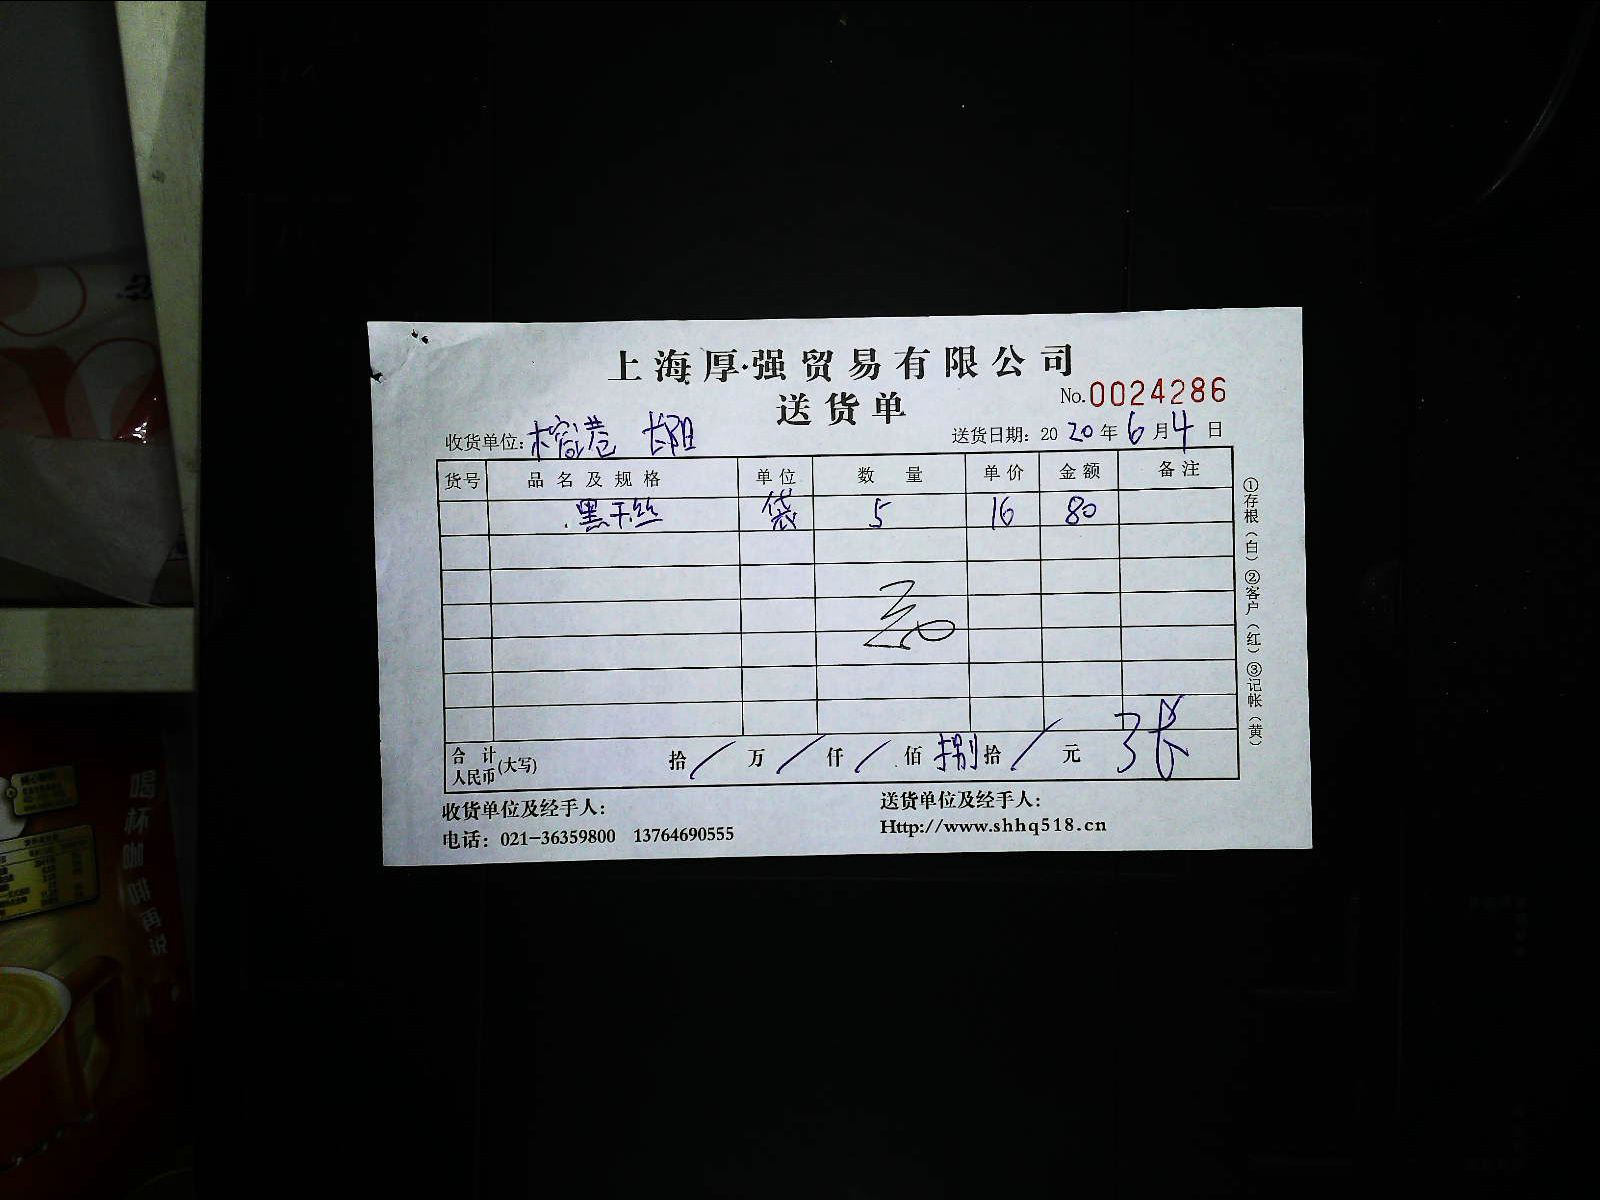 上海厚强贸易有限公司
No.0024286
送货单
收货单位: 榕港 长阳
送货日期: 2020年6月4日
货号 品名及规格 单位 数量 单价 金额 备注
黑干丝 袋 5 16 80
合计人民币(大写) 拾/万/仟/佰捌拾/元
收货单位及经手人:
送货单位及经手人:
电话: 021-36359800 13764690555
Http://www.shhq518.cn
①存根(白)②客户(红)③记帐(黄)
喝杯咖啡再说